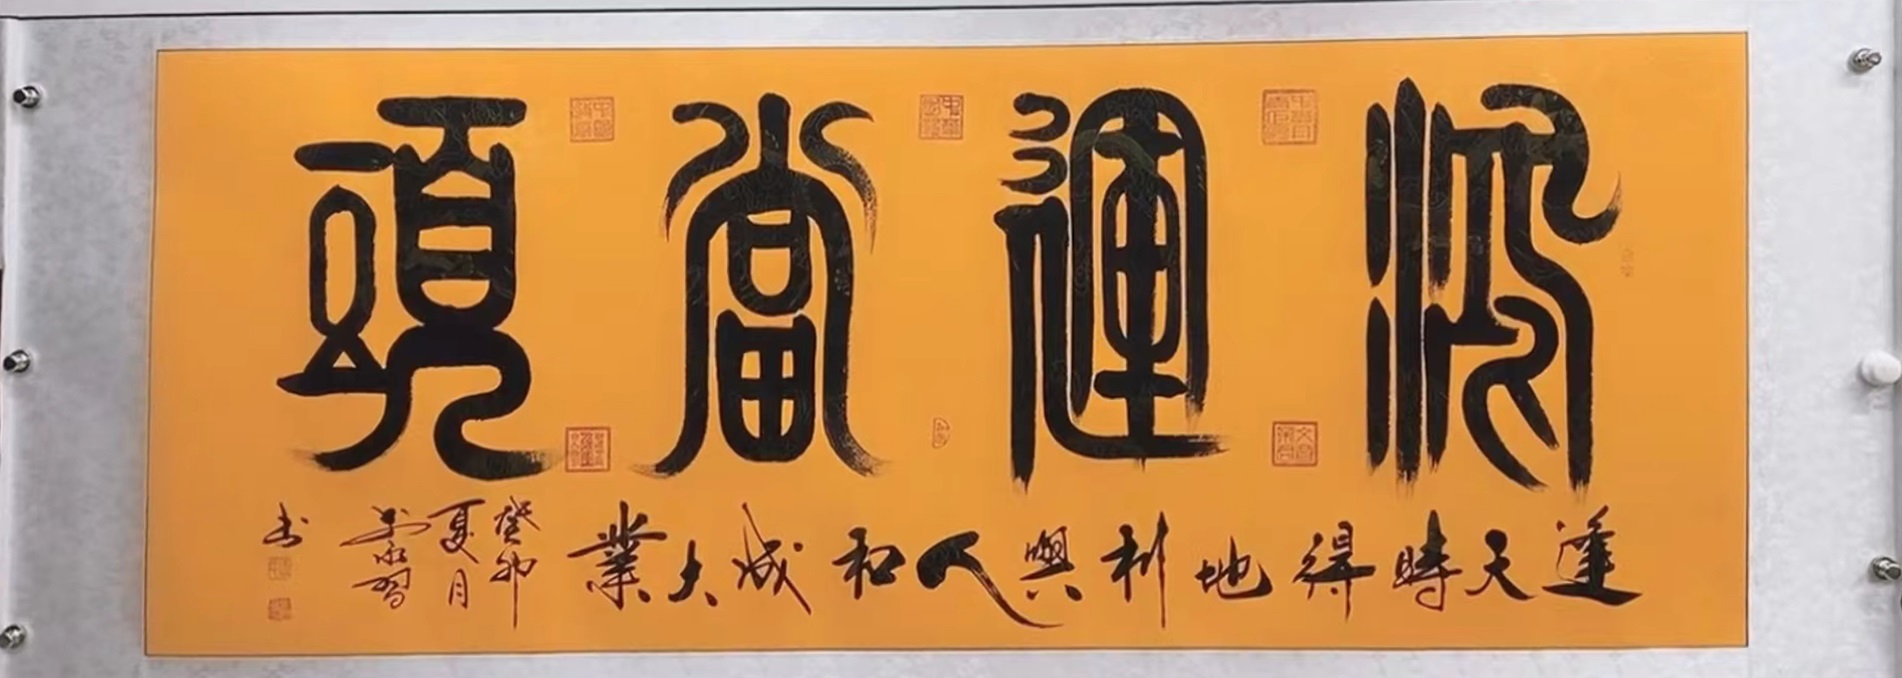 鴻運當頭
逢天時得地利與人和成大業
癸卯
夏月
书